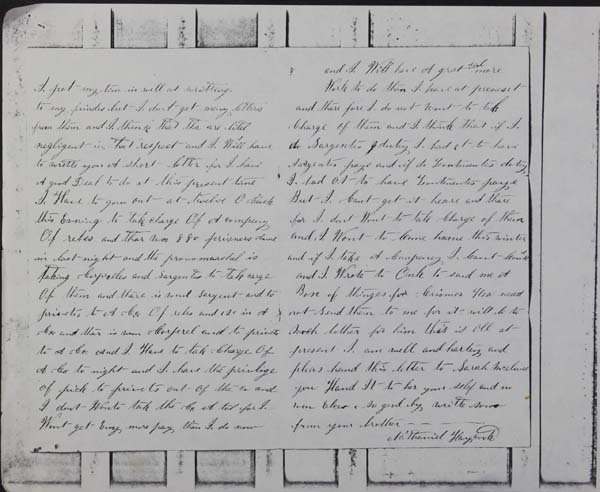 I put my time in well at writting
to my friendes but I dont get many letters
from them and I think that tha are
negligent in that respect and I Will have
to write you A short letter for I have
A good Deal to do at this present time
I Have to goin out at twelve O Clock
this Evning to take charge Of A company
Of rebes and thar was 880 came
in last night and the provo marchal is
taking Corprelles and Sargentes to take carge
Of them and there is won sargent and to
privetes to A Co Of rebes and 120 in A
Co and thar is won Corprel and to privetes
to A Co and I Have to take Charge Of
A Co to night and I have the privilige
of pick to privets out of the co and
I dont Wante take the Co A tal for I
Wont get Eny more pay than I do now
and I Will have A grat deal more
Work to do than I have at pressent
and there fore I do not Want to tak
Charge of them and I think that if I
do Sargentes duty I had ot to have
Sargentes paye and if do Leutinantes duty
I had Ot to have Leutinantes paye
But I Cant get it heare and there
for I dont Want to take Charge of them
and I Want to Come home this winter
and if I take A Company I Cant
and I Wrote to to send me A
Boxe of thinges for Crismes need
not Send them to me for it will be to
letter for him this is All at
present I am well and harting and
pleas hand this letter to Sarah
you Hand It to her your self and no
won Elce so good by write soon
from your brother
Nathaniel